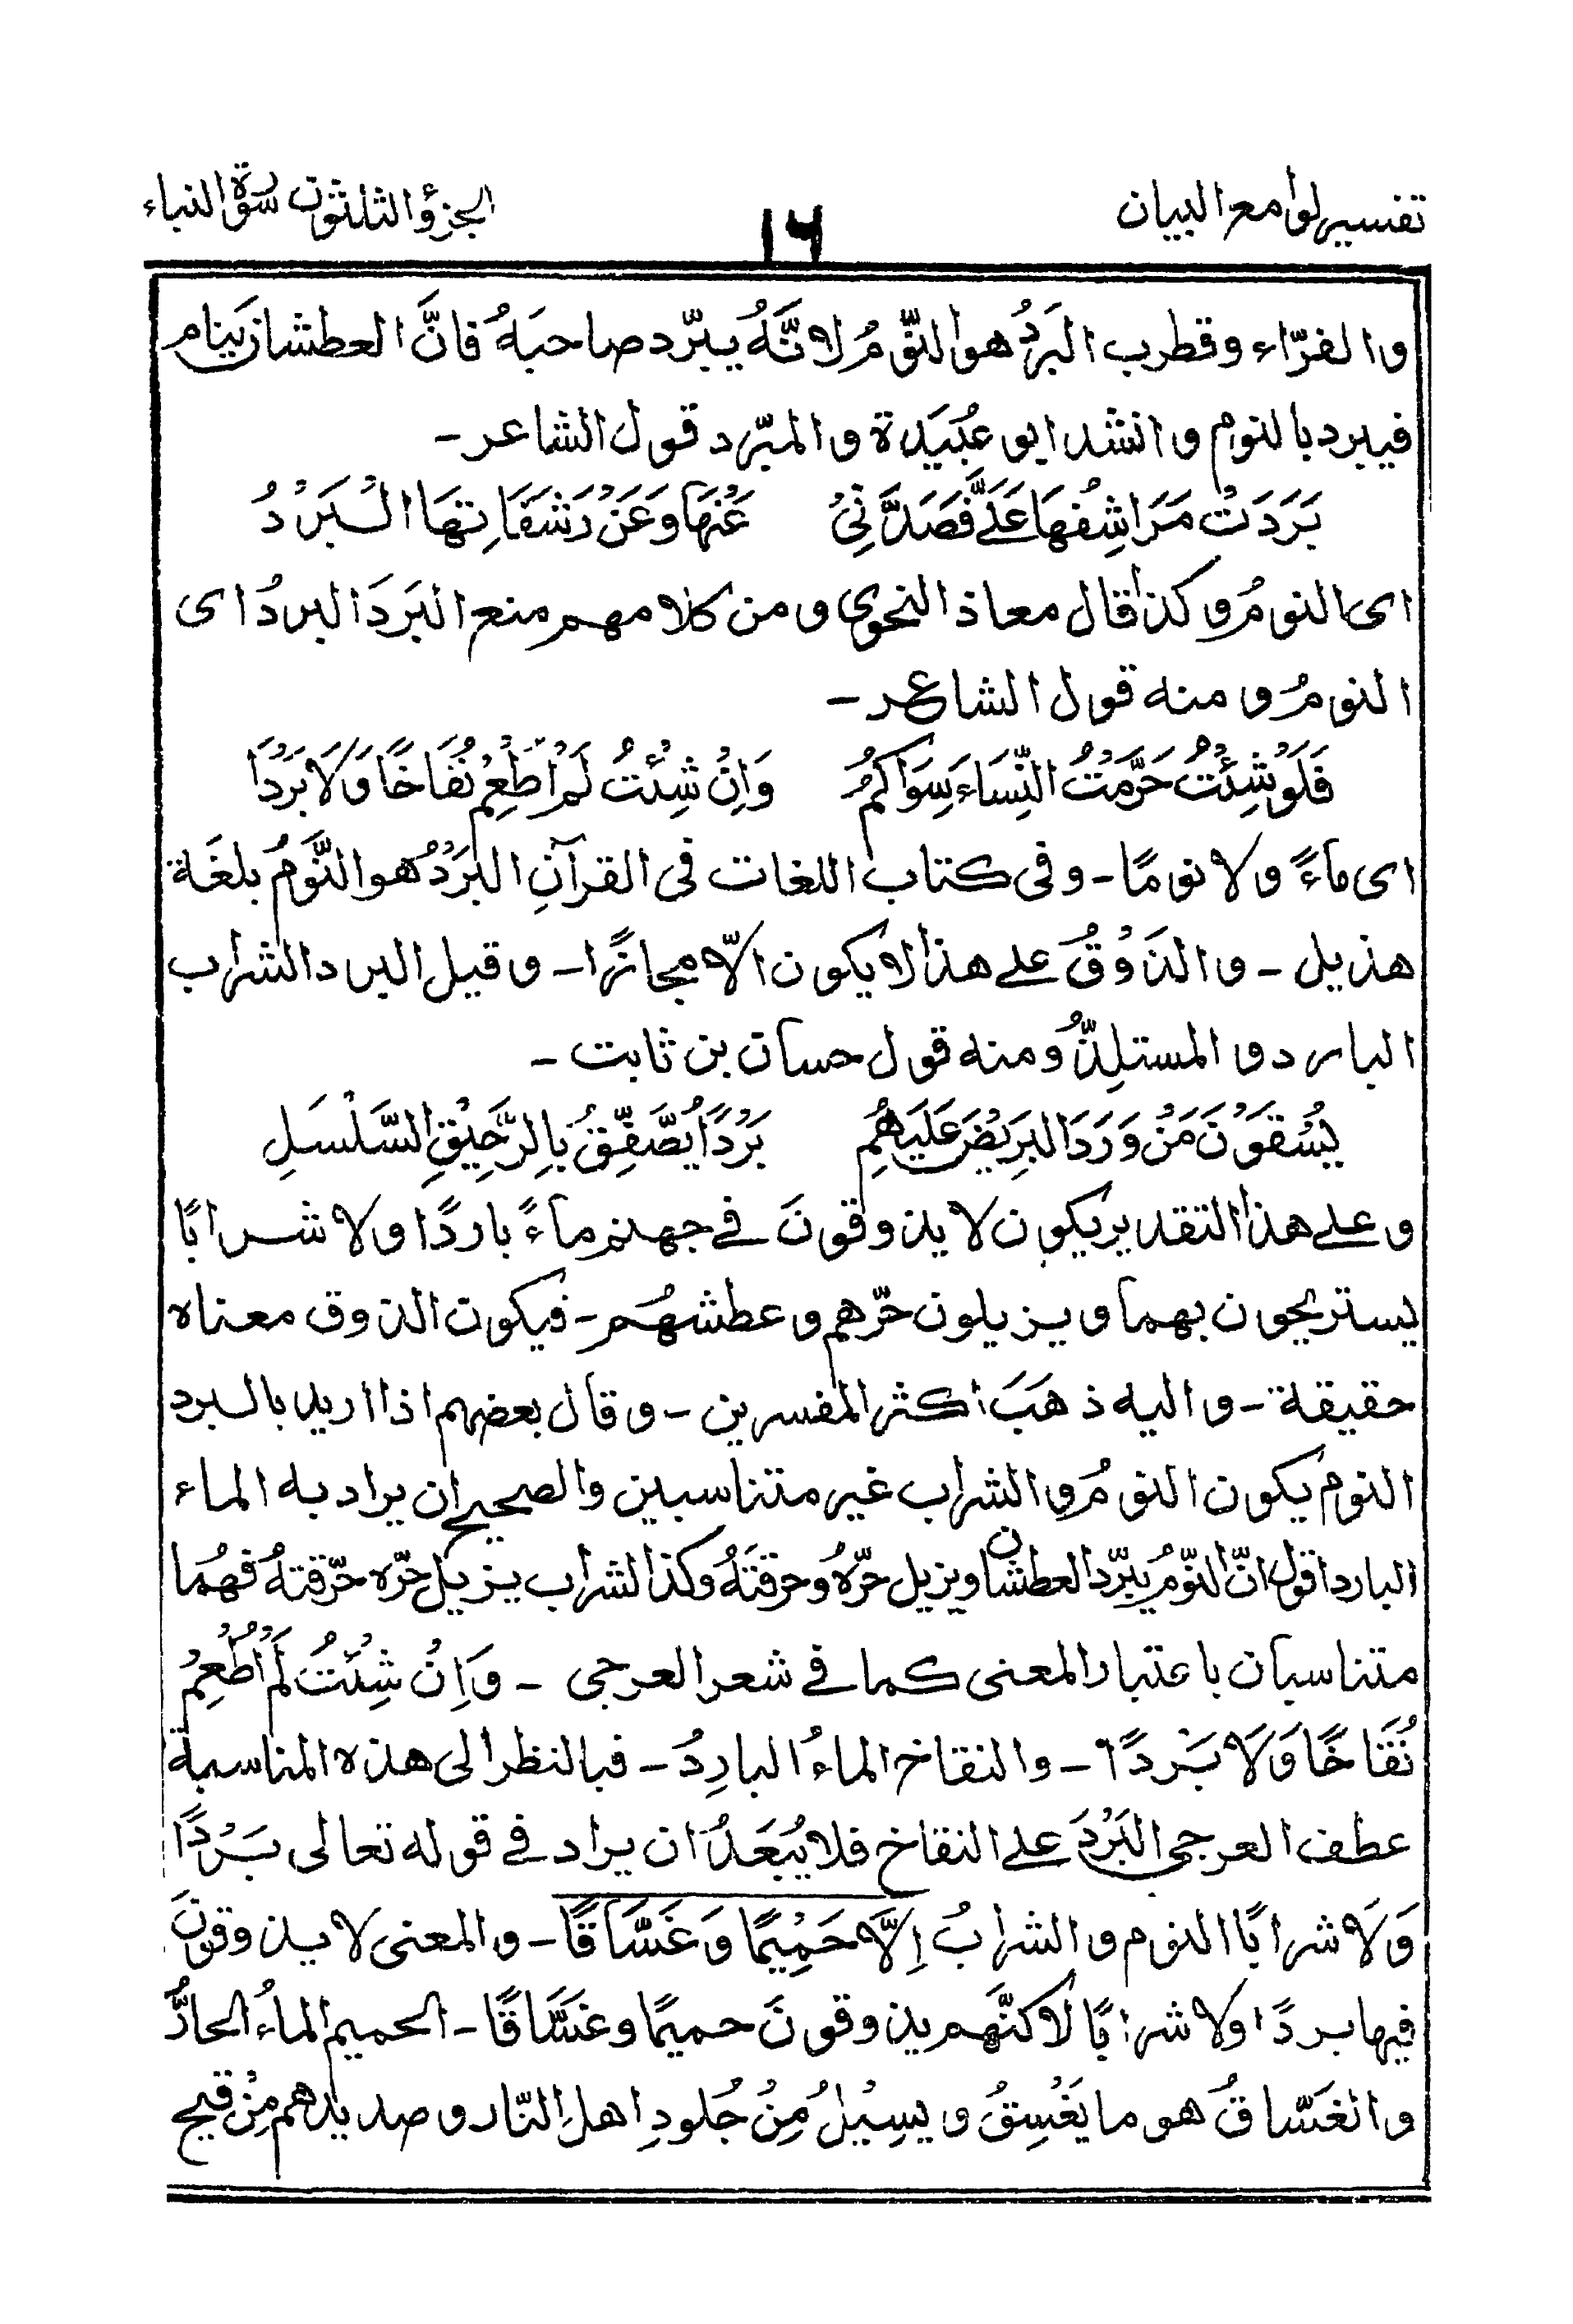 تفسير لوامع البيان
١٦
الجزؤ الثلثون سورة النباء
والفرّاء وقطرب البَردُ هو النّومُ لانَّهُ يبرّد صاحبَهُ فانَّ العطشان ينام
فيبرد بالنوم و انشد ابو عُبَيدة و المبّرد قول الشاعر -
بَرَدَتْ مَرَاشِفُهَا عَلَيَّ فَصَدَّنِيْ عَنْهَا وَعَنْ رَشَفَاتِهَا الْبَرْدُ
اى النومُ و كذا قال معاذ النحوى و من كلامهم منع البَردَ البردُ اى
النومُ و منه قول الشاعر -
فَلَوْ شِئْتُ حَرَّمْتُ النِّسَاءَ سِوَاكُمُ وَاِنْ شِئْتُ لَمْ اَطْعِمْ نُقَاخًا وَلَا بَرْدًا
اى ماءً و لا نومًا - وفى كتاب اللغات فى القرآنِ البَرْدُ هو النَّومُ بلغَة
هذيل - و الذَوْقُ على هذا لا يكون الّا مجازًا - و قيل البرد الشراب
البارد و المستلِذُّ ومنه قول حسان بن ثابت -
يُسْقَوْنَ مَنْ وَرَدَ البَرِيْضَ عَلَيْهِمُ بَرْدًا يُصَّفِّقُ بِالرَّحِيْقِ السَّلْسَلِ
و على هذا التقدير يكون لا يذوقونَ في جهنم ماءً باردًا و لا شرابًا
يستريحون بهما و يزيلون حرّهم و عطشهُم - فيكون الذوق معناه
حقيقة - و اليه ذهَبَ اكثر المفسرين - و قال بعضهم اذا اريد بالبرد
النوم يكون النومُ و الشراب غير متناسبين والصحيح ان يراد به الماء
البارد اقول انّ النّومُ يبرّد العطشان ويزيل حرّهُ وحرقتَهُ وكذا الشراب يزيل حرّه حرّقتهُ فهُما
متناسبان باعتبار المعنى كما في شعر العرجى - وَاِنْ شِئْتُ لَمْ اَطْعِمْ
نُقَاخًا وَلَا بَرْدًا - والنقاخ الماءُ البارِدُ - فبالنظر الى هذه المناسبة
عطف العرجى البَرْدَ على النقاخ فلا يُبعَدُ ان يراد في قوله تعالى بَرْدًا
وَلَا شرابًا النوم و الشرابُ اِلَّا حَمِيْمًا وَغَسَّاقًا - والمعنى لا يذوقون
فيها بردًا ولا شرابًا لاكنَّهم يذوقونَ حميمًا وغسَّاقًا - الحميم الماءُ الحارُّ
والغَسَّاقُ هو ما يَغْسِقُ و يسِيْلُ مِنْ جُلودِ اهل النّار و صديدهم مِنْ قيح